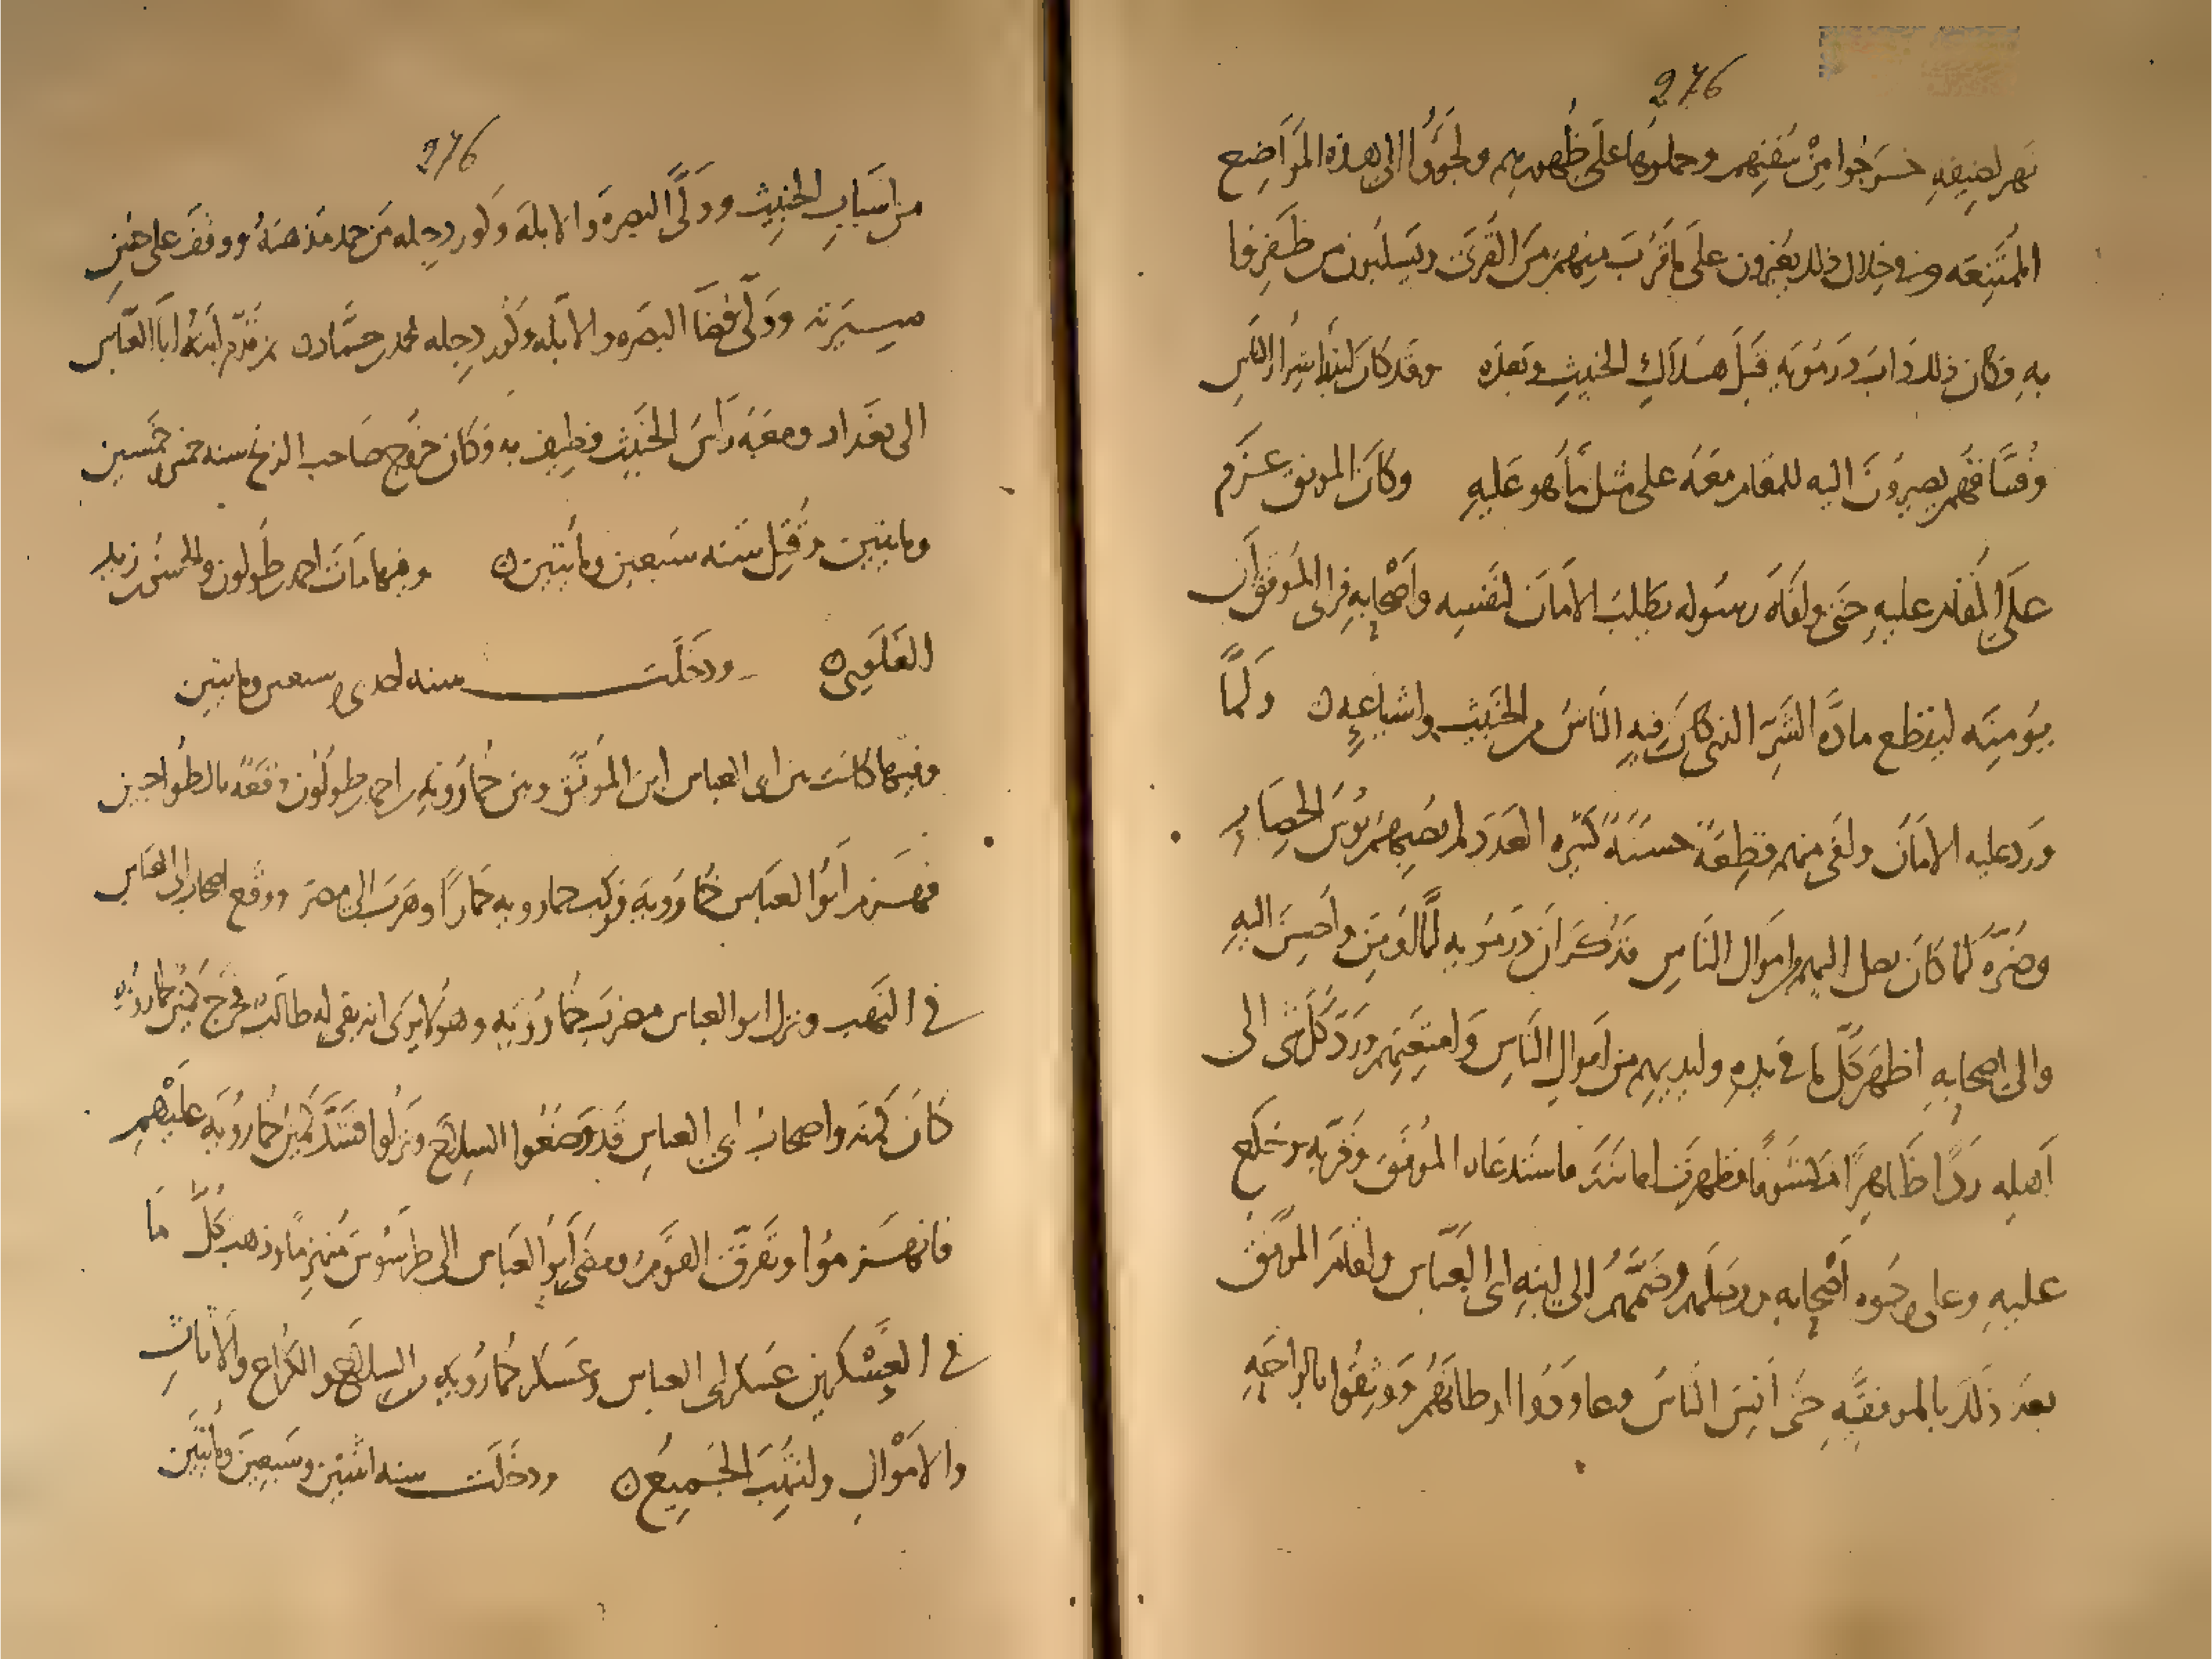 276
نهر لضيقه خرجوا من سفنهم وحملوها على ظهورهم ولجؤوا الى هذه المواضع
الممتنعه وفى خلال ذلك يغيرون على ما قرب منهم من القرى ويسلبون من ظفروا
به فكان ذلك داب درمويه قبل هلاك الخبيث وبعده وقد كان شرار الناس
وفساقهم يصيرون اليه للمقام معه على مثل ما هو عليه وكان الموفق عزم
على المقام عليه حتى ولقاه رسوله يطلب الامان لنفسه واصحابه فراى الموفق ان
يومنه ليقطع مادة الشر الذى كان فيه الناس من الخبيث واشياعه ولما
ورد عليه الامان ولقى منهم قطعة حسنة كثيره العدد لم يصبهم بوس الحصار
وضره لما كان يصل اليهم من اموال الناس فذكر ان درمويه لما اومن واحسن اليه
والى اصحابه اظهر كل ما فى يده وايديهم من اموال الناس وامتعتهم ورد كل شى الى
اهله ردا ظاهرا مكشوفا فظهرت امانته فاستدعاه الموفق وقربه وخلع
عليه وعلى وجوه اصحابه ووصلهم وضمهم الى ابنه ابى العباس واقام الموفق
بعد ذلك بالموفقيه حتى انس الناس وعاودوا اوطانهم ووثقوا بالراحه
276
من اسباب الخبيث وولى البصره والابله وكور دجله من حمد مذهبه ووقف على حسن
سيرته وولى قضا البصره والابله وكور دجله محمد بن حماد ثم قدم ابنه ابا العباس
الى بغداد ومعه راس الخبيث فطيف به فكان خروج صاحب الزنج سنه خمس وخمسين
وماتين وقتل سنه سبعين وماتين وفيها مات احمد بن طولون والحسن بن زيد
العلوى ودخلت سنه احدى وسبعين وماتين
وفيها كانت بين ابى العباس ابن الموفق وبين خمارويه بن احمد بن طولون وقعة بالطواحين
فهزم ابو العباس خمارويه فركب خمارويه حمارا وهرب الى مصر ووقع اصحاب ابى العباس
فى النهب ونزل ابو العباس مضرب خمارويه وهو لا يرى انه بقى له طالب فخرج كمين خمارويه
كان كمنه واصحاب ابى العباس قد وضعوا السلاح ونزلوا فشد كمين خمارويه عليهم
فانهزموا وتفرق القوم ومضى ابو العباس الى طرسوس منهزما وذهب كل ما
فى العسكرين عسكر ابى العباس وعسكر خمارويه من السلاح والكراع والاثاث
والاموال وانتهب الجميع ودخلت سنه اثنتين وسبعين وماتين